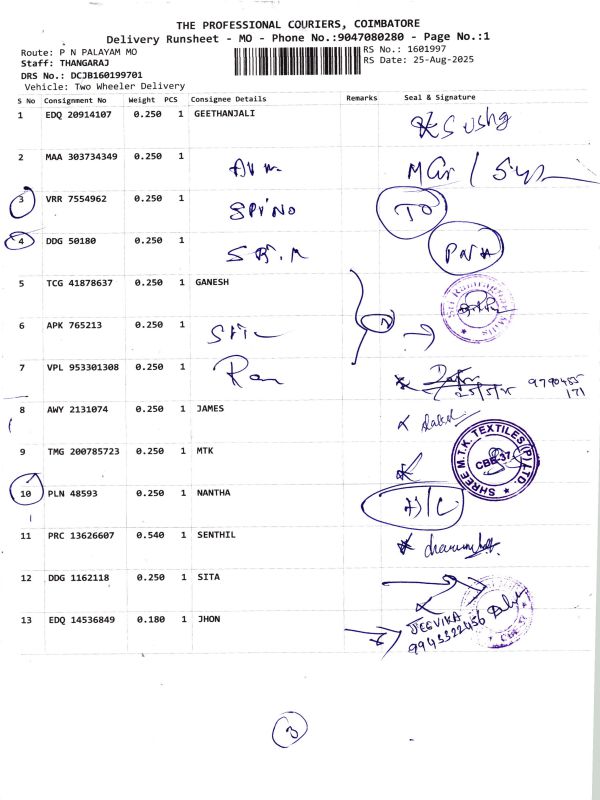 THE PROFESSIONAL COURIERS, COIMBATORE
Delivery Runsheet - MO - Phone No.:9047080280 - Page No.:1
Route: P N PALAYAM MO
RS No.: 1601997
Staff: THANGARAJ
RS Date: 25-Aug-2025
DRS No.: DCJB160199701
Vehicle: Two Wheeler Delivery
S No Consignment No Weight PCS Consignee Details Remarks Seal & Signature
1 EDQ 20914107 0.250 1 GEETHANJALI
2 MAA 303734349 0.250 1
3 VRR 7554962 0.250 1 SPINO TO
4 DDG 50180 0.250 1
5 TCG 41878637 0.250 1 GANESH
6 APK 765213 0.250 1
7 VPL 953301308 0.250 1 Ram
8 AWY 2131074 0.250 1 JAMES
9 TMG 200785723 0.250 1 MTK
SHREE M.T.K. TEXTILES (P) LTD.
CBE-37
10 PLN 48593 0.250 1 NANTHA
11 PRC 13626607 0.540 1 SENTHIL
12 DDG 1162118 0.250 1 SITA
13 EDQ 14536849 0.180 1 JHON
JEEVIKA
9945322456
3